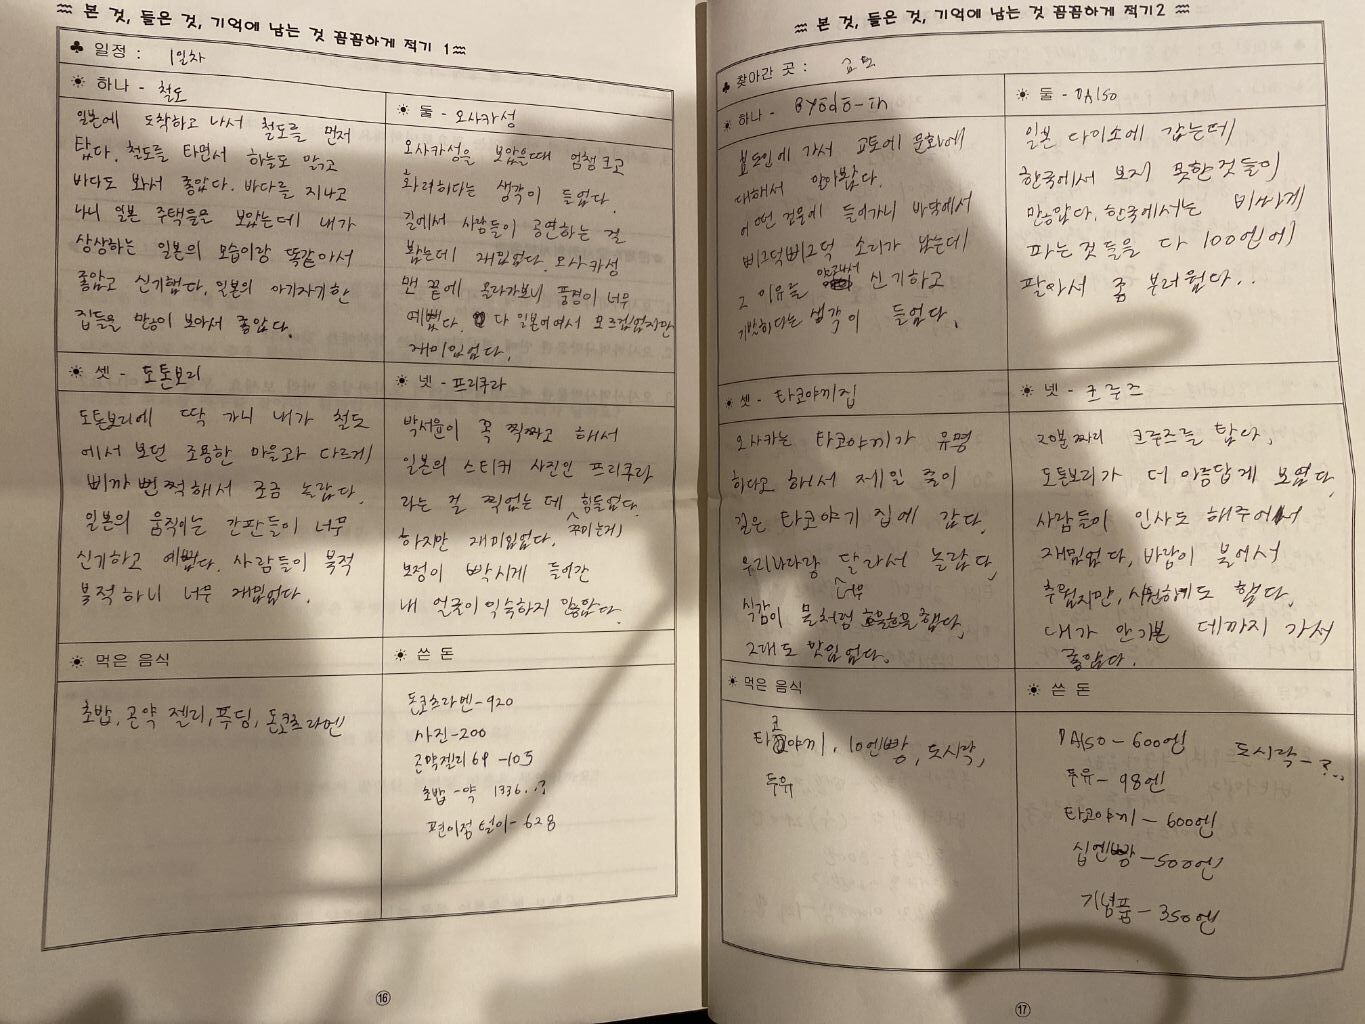 본 것, 들은 것, 기억에 남는 것 꼼꼼하게 적기 1
♣ 일정 : 1일차
☀ 하나 - 철도
일본에 도착하고 나서 철도를 먼저
탔다. 철도를 타면서 하늘도 맑고
바다도 봐서 좋았다. 바다를 지나고
나니 일본 주택들을 보았는데 내가
상상하는 일본의 모습이랑 똑같아서
좋았고 신기했다. 일본의 아기자기한
집들을 많이 보아서 좋았다.
☀ 둘 - 오사카성
오사카성을 보았을때 엄청 크고
화려하다는 생각이 들었다.
길에서 사람들이 공연하는 걸
봤는데 재밌었다. 오사카성
맨 끝에 올라가보니 풍경이 너무
예뻤다. 다 일본어여서 모르겠었지만
재미있었다.
☀ 셋 - 도톤보리
도톤보리에 딱 가니 내가 철도
에서 보던 조용한 마을과 다르게
삐까뻔쩍해서 조금 놀랐다.
일본의 움직이는 간판들이 너무
신기하고 예뻤다. 사람들이 북적
북적하니 너무 재밌었다.
☀ 넷 - 프리쿠라
박서윤이 꼭 찍자고 해서
일본의 스티커 사진인 프리쿠라
라는 걸 찍었는데 힘들었다.
꾸미는게
하지만 재미있었다.
보정이 빡시게 들어간
내 얼굴이 익숙하지 않았다.
☀ 먹은 음식
초밥, 곤약 젤리, 푸딩, 돈코츠라멘
☀ 쓴 돈
돈코츠라멘-920
사진-200
곤약젤리 69 -105
초밥 -약 1336..?
편이점 털이-628
⑯
본 것, 들은 것, 기억에 남는 것 꼼꼼하게 적기2
♣ 찾아간 곳 : 교토
☀ 하나 - BYODO-in
뵤도인에 가서 교토에 문화에
대해서 알아봤다.
어떤 건물에 들어가니 바닥에서
삐그덕삐그덕 소리가 났는데
그 이유를 알고나서 신기하고
기발하다는 생각이 들었다.
☀ 둘 - DAISO
일본 다이소에 갔는데
한국에서 보지 못한것들이
많았다. 한국에서는 비싸게
파는 것들을 다 100엔에
팔아서 좀 부러웠다..
☀ 셋 - 타코야끼집
오사카는 타코야끼가 유명
하다고 해서 제일 줄이
긴 타코야끼 집에 갔다.
우리나라랑 달라서 놀랐다.
너무
식감이 물처럼 흐물흐물했다.
그래도 맛있었다.
☀ 넷 - 크루즈
20분 짜리 크루즈를 탔다.
도톤보리가 더 아름답게 보였다.
사람들이 인사도 해주어서
재밌었다. 바람이 불어서
추웠지만, 시원하기도 했다.
내가 안가본 데까지 가서
좋았다.
☀ 먹은 음식
타코야끼, 10엔빵, 도시락,
두유
☀ 쓴 돈
DAISO-600엔 도시락-?...
두유-98엔
타코야끼-600엔
십엔빵-500엔
기념품-350엔
⑰